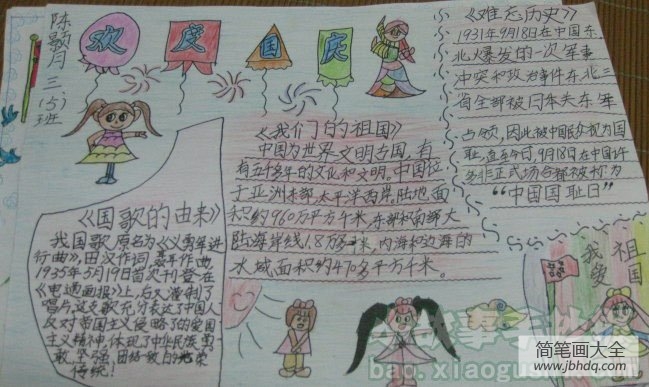 陈颢月三(5)班
欢度国庆
《难忘历史》
1931年9月18日在中国东
北爆发的一次军事
冲突和政治事件东北三
省全部被日本关东军
占领,因此被中国民众视为国
耻,直至今日,9月18日在中国许
多非正式场合都被称为
“中国国耻日”
《我们的祖国》
中国为世界文明古国,有
有五千多年的文化和文明。中国位
于亚洲东部,太平洋西岸,陆地面
积约960万平方千米,东部和南部大
陆海岸线1.8万多千米,内海和边海的
水域面积约470多平方千米。
《国歌的由来》
我国歌原名为《义勇军进
行曲》,田汉作词,聂耳作曲,
1935年5月19日首次刊登在
《电通画报》上,后又灌制了
唱片,这支歌充分表达了中国人
反对帝国主义侵略的爱国
主义精神,体现了中华民族勇
敢、坚强、团结一致的光荣
传统!
我爱祖国
bao.xiaogushi.com
简笔画大全
www.jbhdq.com